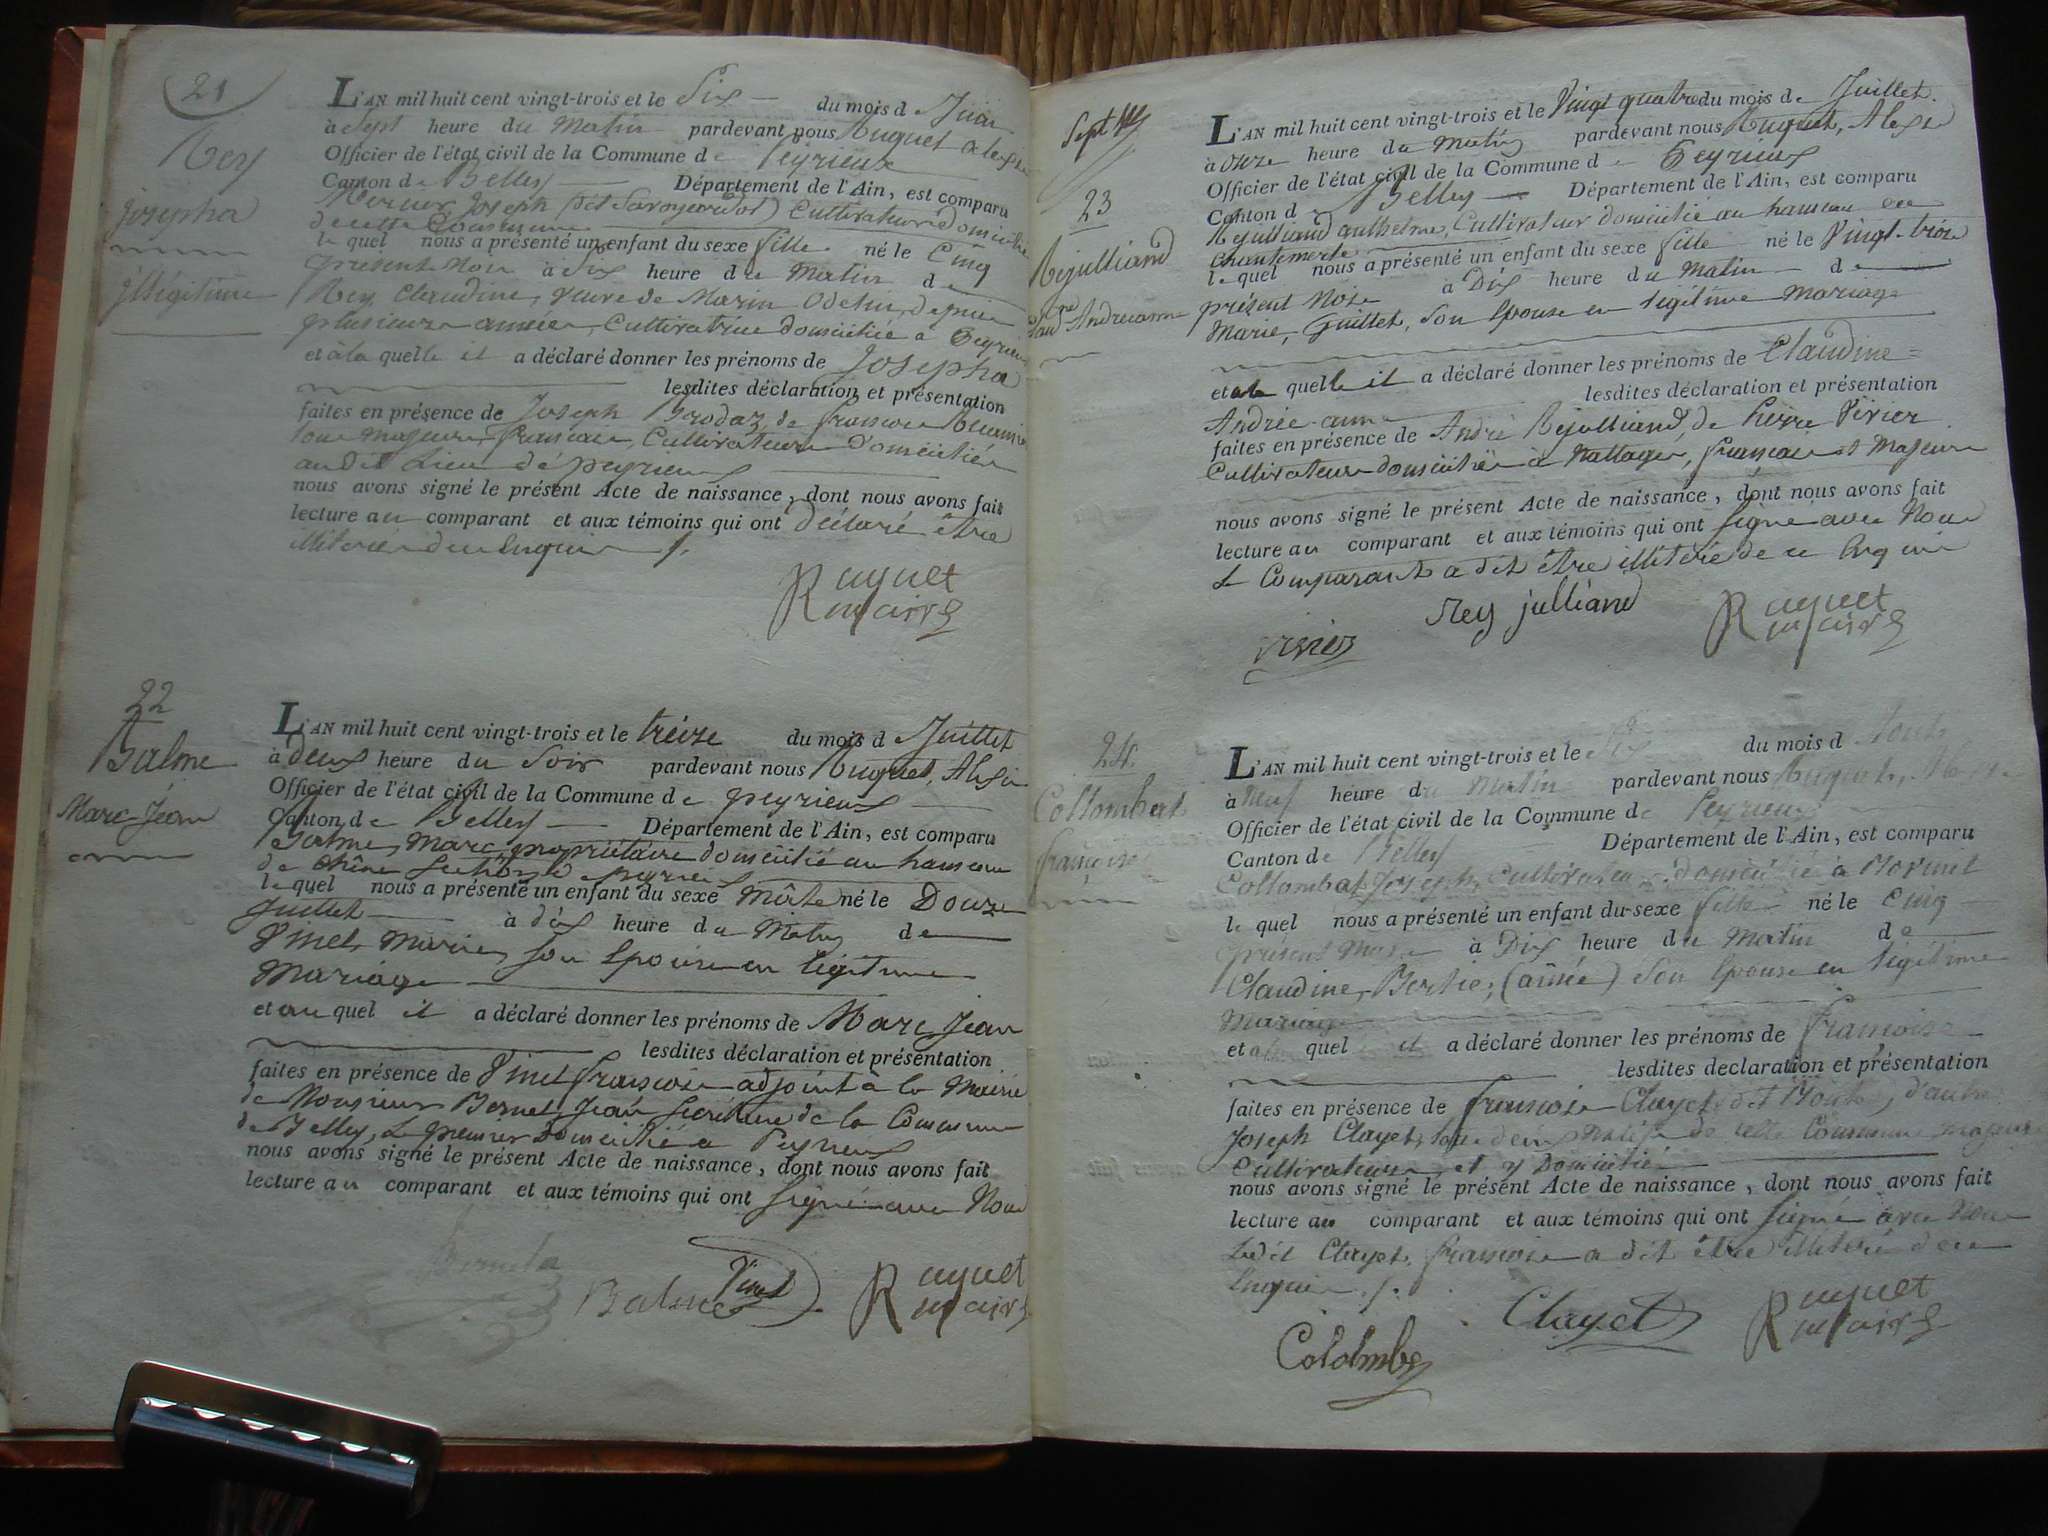 21
Rey
Josepha
illégitime
L'AN mil huit cent vingt-trois et le Six du mois de Juin
à Sept heure du Matin pardevant nous Ruquet Alexis
Officier de l'état civil de la Commune de Peyrieux
Canton de Belley Département de l'Ain, est comparu
Joseph (dit Savoyardot) Cultivateur domicilié
de cette Commune
le quel nous a présenté un enfant du sexe fille né le Cinq
présent Mois à Six heure du Matin de
Rey Claudine, veuve de Marin Odetin, depuis
plusieurs années, Cultivatrice domiciliée a Peyrieux
et à la quelle il a déclaré donner les prénoms de Josepha
lesdites déclaration et présentation
faites en présence de Joseph Brodaz, de françois
tous majeurs, français, Cultivateurs Domiciliés
au dit Lieu de peyrieux
nous avons signé le présent Acte de naissance, dont nous avons fait
lecture au comparant et aux témoins qui ont déclaré être
illiterés de ce Enquis
Ruquet
maire
22
Balme
Marc-Jean
L'AN mil huit cent vingt-trois et le treize du mois d Juillet
à deux heure du Soir pardevant nous Ruquet, Alexis
Officier de l'état civil de la Commune de peyrieux
Canton de Belley Département de l'Ain, est comparu
Balme, Marc, propriétaire domicilié au hameau
de
le quel nous a présenté un enfant du sexe Mâle né le Douze
Juillet à dix heure du Matin de
Vinet, Marie, son Epouse en légitime
Mariage
et au quel il a déclaré donner les prénoms de Marc, Jean
lesdites déclaration et présentation
faites en présence de Vinet françois adjoint à la Mairie
de Monsieur Bernet Jean Secrétaire de la Commune
de Belley, le premier Domicilié a Peyrieux
nous avons signé le présent Acte de naissance, dont nous avons fait
lecture au comparant et aux témoins qui ont Signé avec Nous
Balme Vinet Ruquet
maire
Sept
23
Rejulliand
Claudne Andréeanne
L'AN mil huit cent vingt-trois et le Vingt quatre du mois de Juillet
à onze heure du Matin pardevant nous Ruquet, Alexis
Officier de l'état civil de la Commune de Peyrieux
Canton d Belley Département de l'Ain, est comparu
Rejulliand anthelme, Cultivateur domicilié au hameau de
Chantemerle
le quel nous a présenté un enfant du sexe fille né le Vingt-trois
présent Mois à Dix heure du Matin de
Marie, Guillet, Son Epouse en légitime Mariage
et a la quelle il a déclaré donner les prénoms de Claudine =
Andrée-anne lesdites déclaration et présentation
faites en présence de André Rejulliand, de Pierre Vivier
Cultivateurs domiciliés à Nattages, français et Majeurs
nous avons signé le présent Acte de naissance, dont nous avons fait
lecture au comparant et aux témoins qui ont Signé avec Nous
Le Comparant a dit être illiteré de ce Enquis
vivier Rey julliand Ruquet
maire
24.
Collombat
françoise
L'AN mil huit cent vingt-trois et le Six du mois d Aout
à Neuf heure du Matin pardevant nous Ruquet, Alexis
Officier de l'état civil de la Commune de Peyrieux
Canton de Belley Département de l'Ain, est comparu
Collombat Joseph, Cultivateur domicilié à
le quel nous a présenté un enfant du sexe fille né le Cinq
présent Mois à Dix heure du Matin de
Claudine, Bertie, (ainée) Son Epouse en légitime
Mariage
et a la quel il a déclaré donner les prénoms de françoise
lesdites declaration et présentation
faites en présence de françois Clayet, dit d'autre
Joseph Clayet, tous deux Natifs de cette Commune, majeurs
Cultivateurs, et y Domiciliés
nous avons signé le présent Acte de naissance, dont nous avons fait
lecture au comparant et aux témoins qui ont Signé avec Nous
Ledit Clayet, françois a dit être illiteré de ce
Enquis
Colombt Clayet Ruquet
maire